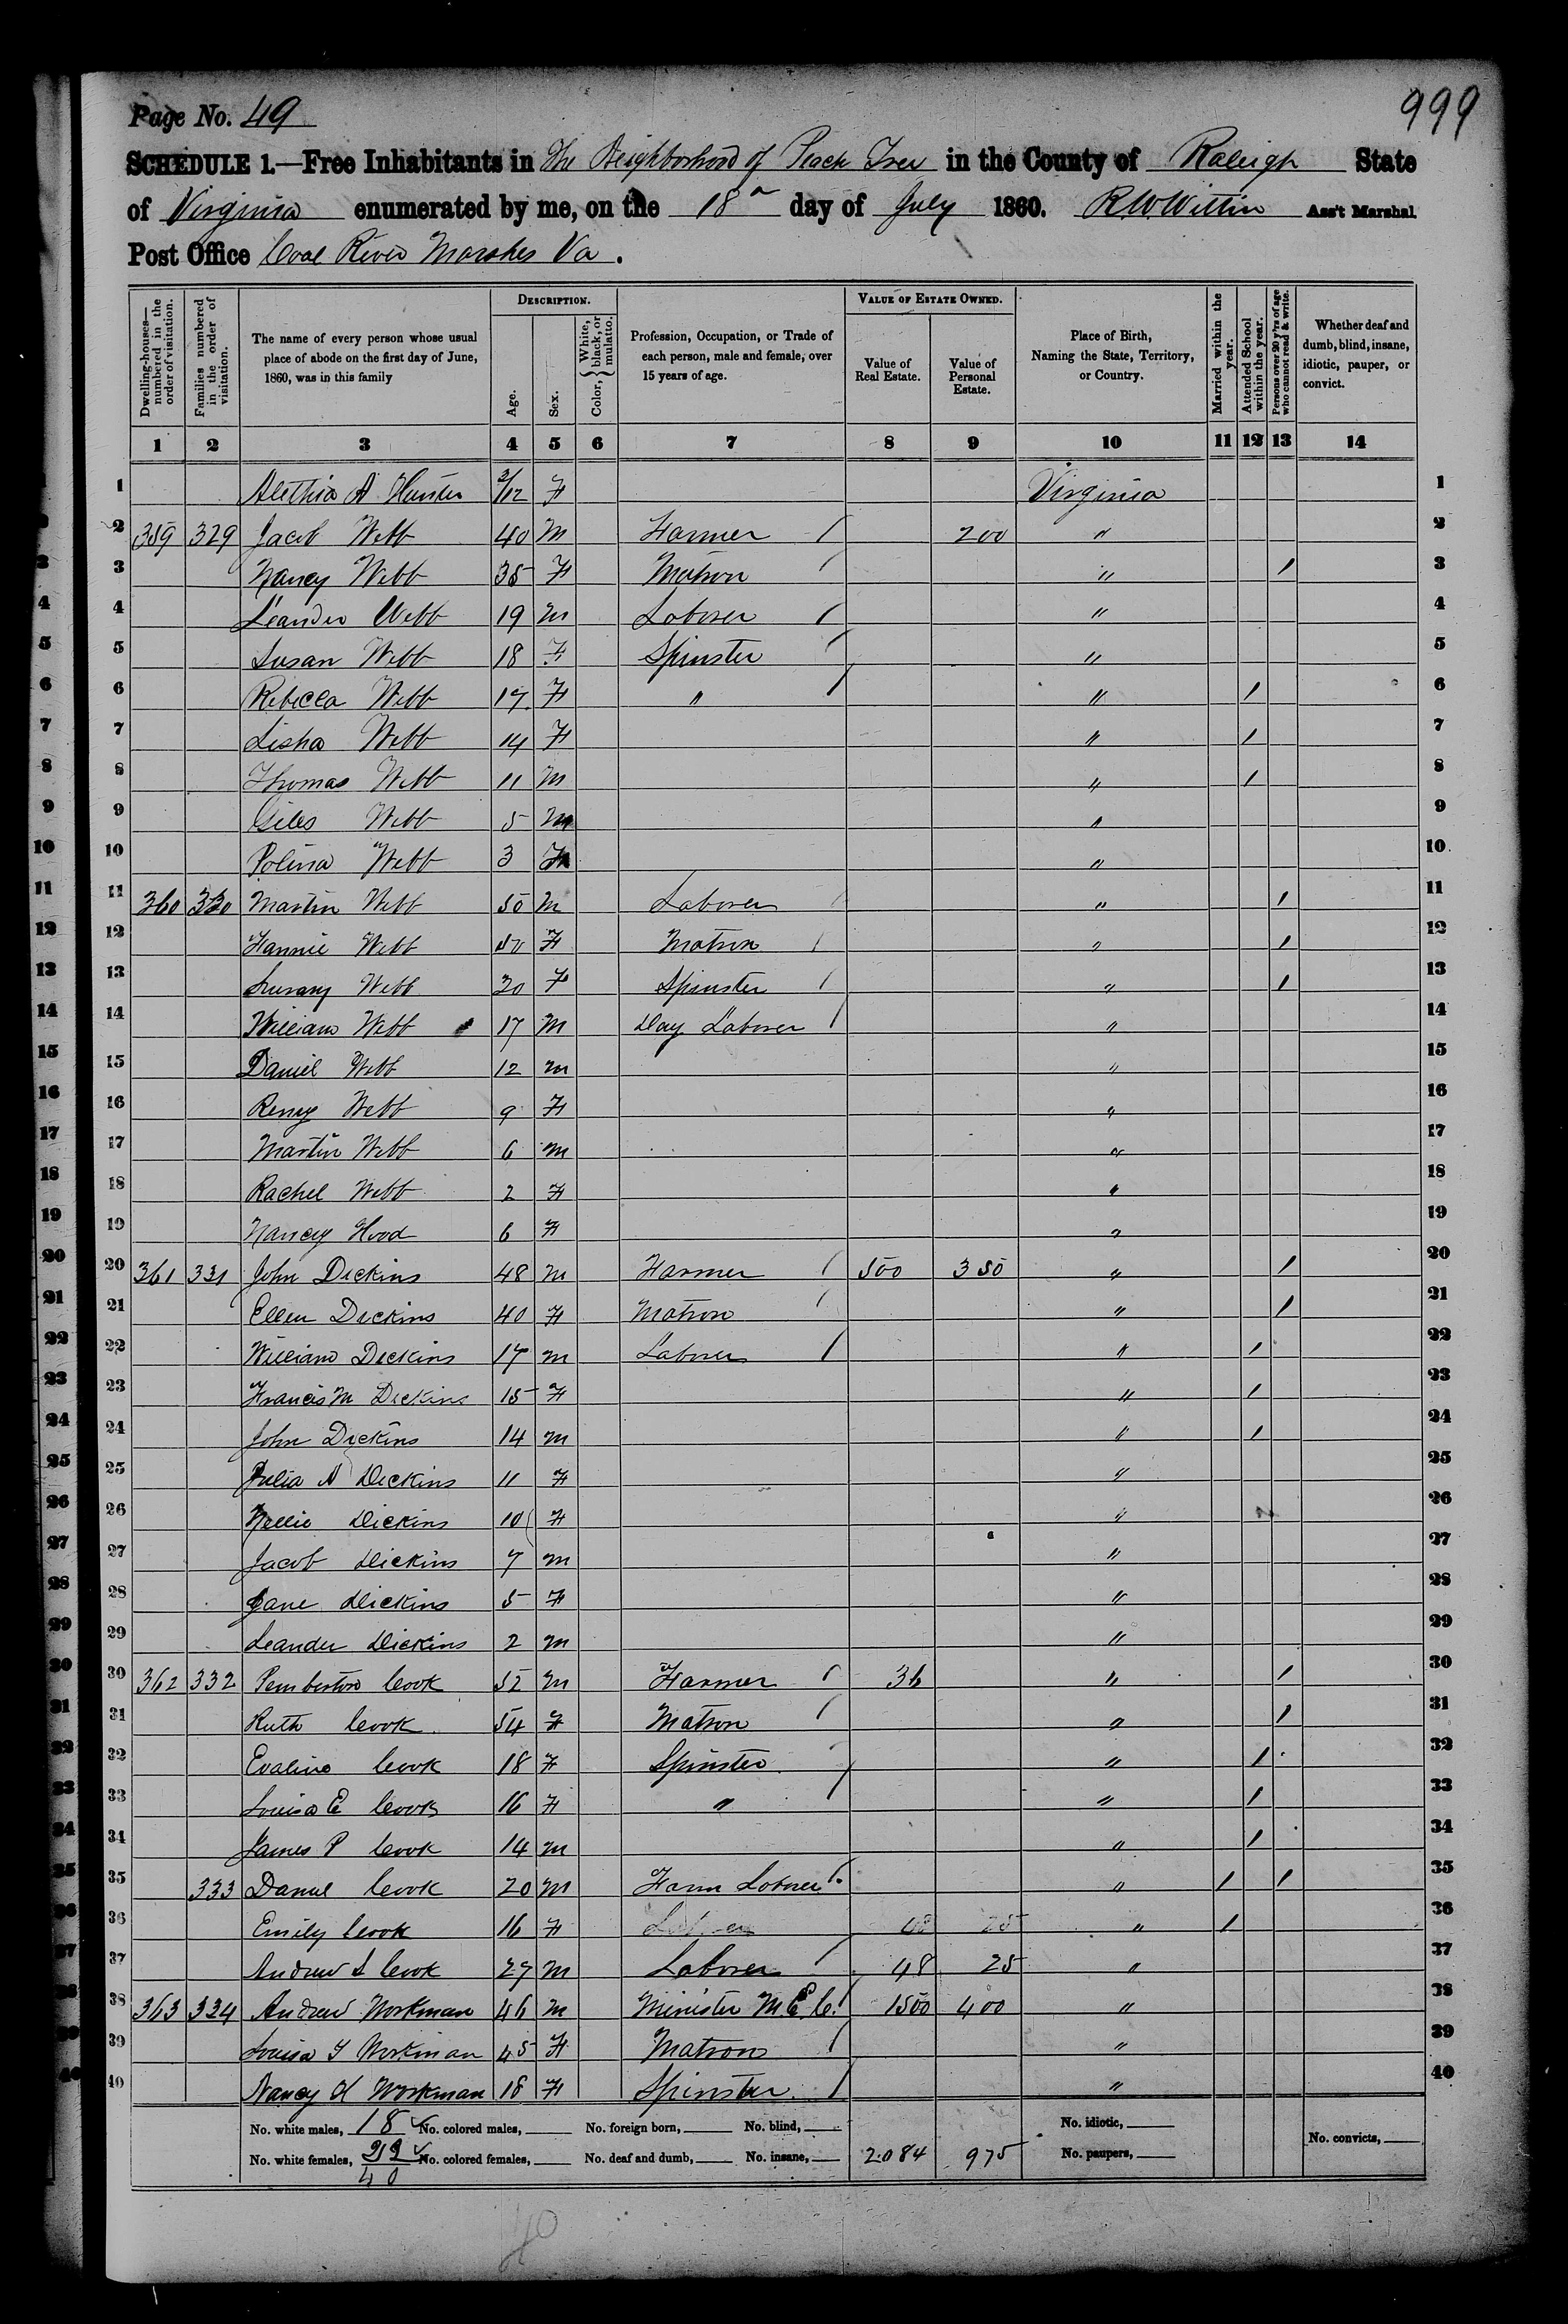 Page No. 49
999
SCHEDULE 1.—Free Inhabitants in The Neighborhood of Peach Tree in the County of Raleigh State
of Virginia enumerated by me, on the 18 day of July 1860. R W Wittin Ass't Marshal
Post Office Coal River Marshes Va.
Dwelling-houses—numbered in the order of visitation. Families numbered in the order of visitation. The name of every person whose usual place of abode on the first day of June, 1860, was in this family DESCRIPTION. Age. Sex. Color, { White, black, or mulatto. Profession, Occupation, or Trade of each person, male and female, over 15 years of age. VALUE OF ESTATE OWNED. Value of Real Estate. Value of Personal Estate. Place of Birth, Naming the State, Territory, or Country. Married within the year. Attended School within the year. Persons over 20 y'rs of age who cannot read & write. Whether deaf and dumb, blind, insane, idiotic, pauper, or convict.
1 2 3 4 5 6 7 8 9 10 11 12 13 14
1 Alethia A Hunter 2/12 F Virginia 1
2 359 329 Jacob Webb 40 M Farmer / 200 " 2
3 Nancy Webb 35 F Matron / " / 3
4 Leander Webb 19 M Laborer / " 4
5 Susan Webb 18 F Spinster / " 5
6 Rebecca Webb 17 F " / " / 6
7 Lisha Webb 14 F " / 7
8 Thomas Webb 11 M " / 8
9 Giles Webb 5 M " 9
10 Polina Webb 3 F " 10
11 360 330 Martin Webb 50 M Laborer / " / 11
12 Fannie Webb 50 F Matron / " / 12
13 Webb 20 F Spinster / " / 13
14 William Webb 17 M Day Laborer / " 14
15 Daniel Webb 12 M " 15
16 Remy Webb 9 F " 16
17 Martin Webb 6 M " 17
18 Rachel Webb 2 F " 18
19 Nancy Hood 6 F " 19
20 361 331 John Dickins 48 M Farmer / 500 350 " / 20
21 Ellen Dickins 40 F Matron / " / 21
22 William Dickins 17 M Laborer / " / 22
23 Francis M Dickins 15 F " / 23
24 John Dickins 14 M " / 24
25 Julia A Dickins 11 F " 25
26 Nellie Dickins 10 F " 26
27 Jacob Dickins 7 M " 27
28 Jane Dickins 5 F " 28
29 Leander Dickins 2 M " 29
30 362 332 Pemberton Cook 52 M Farmer / 36 " / 30
31 Ruth Cook 54 F Matron / " / 31
32 Evaline Cook 18 F Spinster / " / 32
33 Louisa E Cook 16 F " / " / 33
34 James P Cook 14 M " / 34
35 333 Daniel Cook 20 M Farm Laborer / " / / 35
36 Emily Cook 16 F " / 36
37 Andrew L Cook 27 M Laborer / 48 25 " 37
38 363 334 Andrew Workman 46 M Minister M.E.C. / 1500 400 " 38
39 Louisa Y Workman 45 F Matron / " 39
40 Nancy H Workman 18 F Spinster / " 40
No. white males, 18 No. colored males, No. foreign born, No. blind, No. idiotic,
No. white females, 22 No. colored females, No. deaf and dumb, No. insane, 2084 975 No. paupers, No. convicts,
40
40